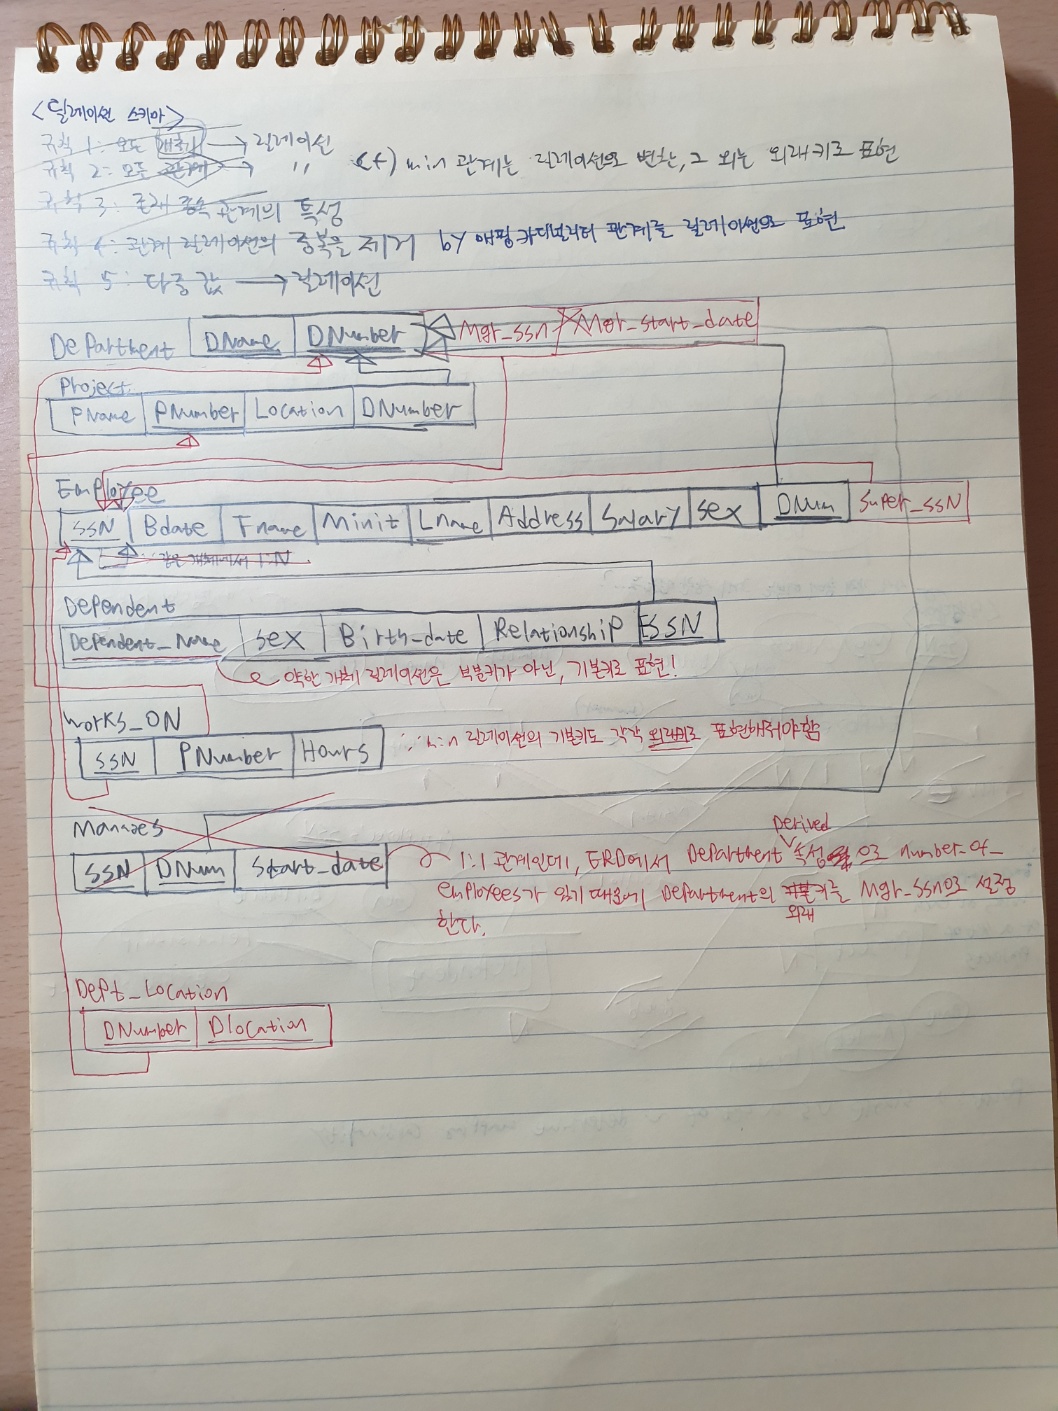 <릴레이션 스키마>
규칙 1: 모든 개체 → 릴레이션
규칙 2: 모든 관계 → 〃 (+) m:n 관계는 릴레이션으로 변환, 그 외는 외래키로 표현
규칙 3: 존재 종속 관계의 특성
규칙 4: 관계 릴레이션의 중복을 제거 by 맵핑 카디널리티 관계를 릴레이션으로 표현
규칙 5: 다중 값 → 릴레이션
Department DName DNumber Mgr_SSN Mgr_start_date
Project
PName PNumber Location DNumber
Employee
SSN Bdate Fname Minit Lname Address Salary Sex DNum Super_SSN
∵ 같은 개체에서 1:N
Dependent
Dependent_Name Sex Birth-date Relationship ESSN
약한 개체 릴레이션은 부분키가 아닌, 기본키로 표현!
Works_ON
SSN PNumber Hours ∵ m:n 릴레이션의 기본키도 각각 외래키로 표현해줘야함
Manages
Derived
SSN DNum Start_date 1:1 관계인데, ERD에서 Department 속성으로 number-of-
employees가 있기 때문에 Department의 기본키를 Mgr_SSN으로 설정
외래
한다.
Dept_Location
DNumber Dlocation